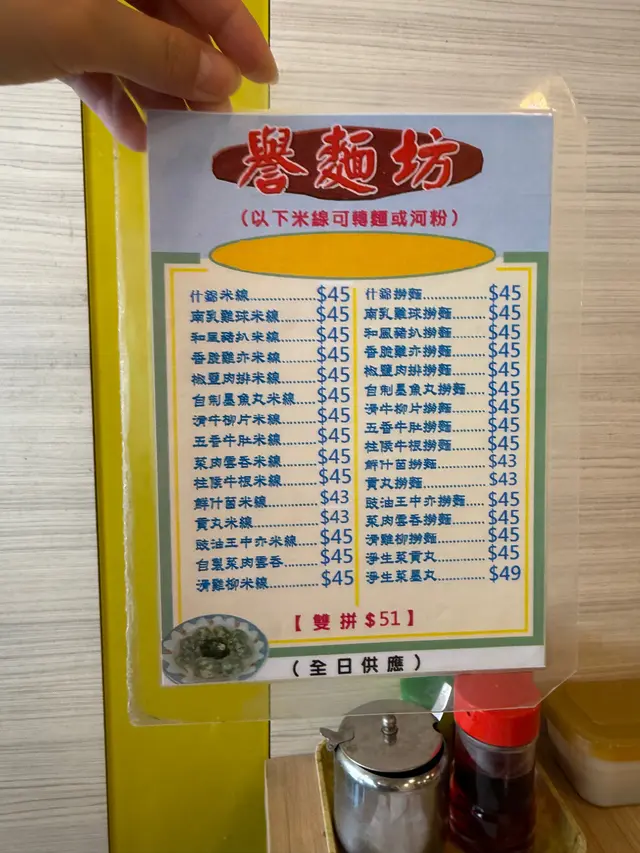 譽麵坊
（以下米線可轉麵或河粉）
什錦米線 $45
南乳雞球米線 $45
和風豬扒米線 $45
香脆雞亦米線 $45
椒鹽肉排米線 $45
自制墨魚丸米線 $45
滑牛柳片米線 $45
五香牛肚米線 $45
菜肉雲吞米線 $45
柱侯牛根米線 $45
鮮什菌米線 $43
貢丸米線 $43
豉油王中亦米線 $45
自製菜肉雲吞 $45
滑雞柳米線 $45
什錦撈麵 $45
南乳雞球撈麵 $45
和風豬扒撈麵 $45
香脆雞亦撈麵 $45
椒鹽肉排撈麵 $45
自制墨魚丸撈麵 $45
滑牛柳片撈麵 $45
五香牛肚撈麵 $45
柱侯牛根撈麵 $45
鮮什菌撈麵 $43
貢丸撈麵 $43
豉油王中亦撈麵 $45
菜肉雲吞撈麵 $45
滑雞柳撈麵 $45
淨生菜貢丸 $45
淨生菜墨丸 $49
【雙拼$51】
（全日供應）